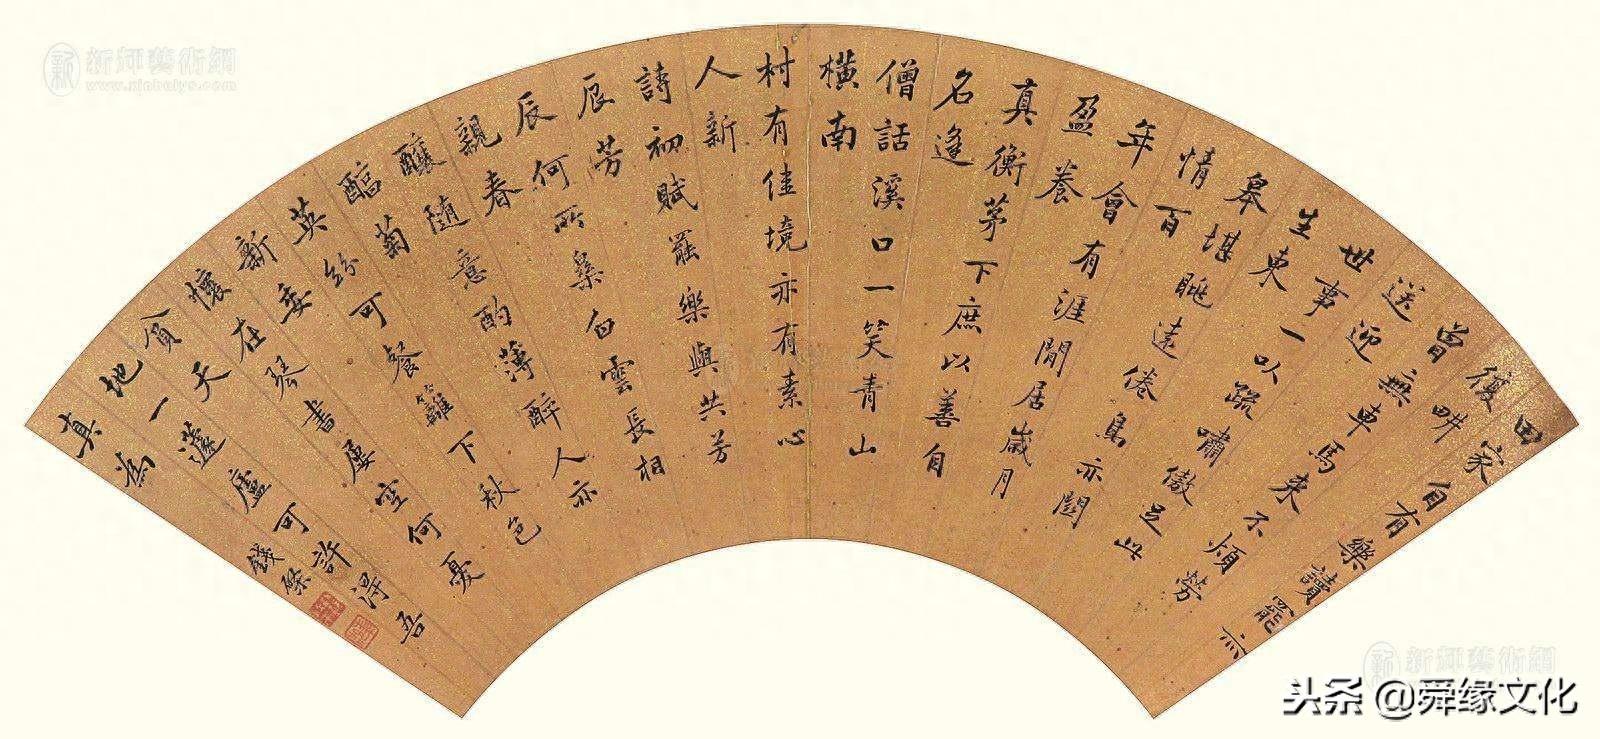 田家自有樂讀罷亦
復畊
曾無車馬來不煩勞
送迎
世事一以疏嘯傲足此
生東
皋堪眺遠倦鳥亦關
情百
年會有涯閒居歲月
盈養
真衡茅下庶以善自
名逢
僧話溪口一笑青山
橫南
村有佳境亦有素心
人新
詩初賦罷樂與共芳
辰芳
辰何所樂白雲長相
親春
釀隨意酌薄醉人亦
醇菊
英紛可餐籬下秋色
新委
懷在琴書屢空何憂
貧天
地一蘧廬可許得吾
真為
錢棨
新輝藝術網
www.xinhuiys.com
头条 @舜缘文化